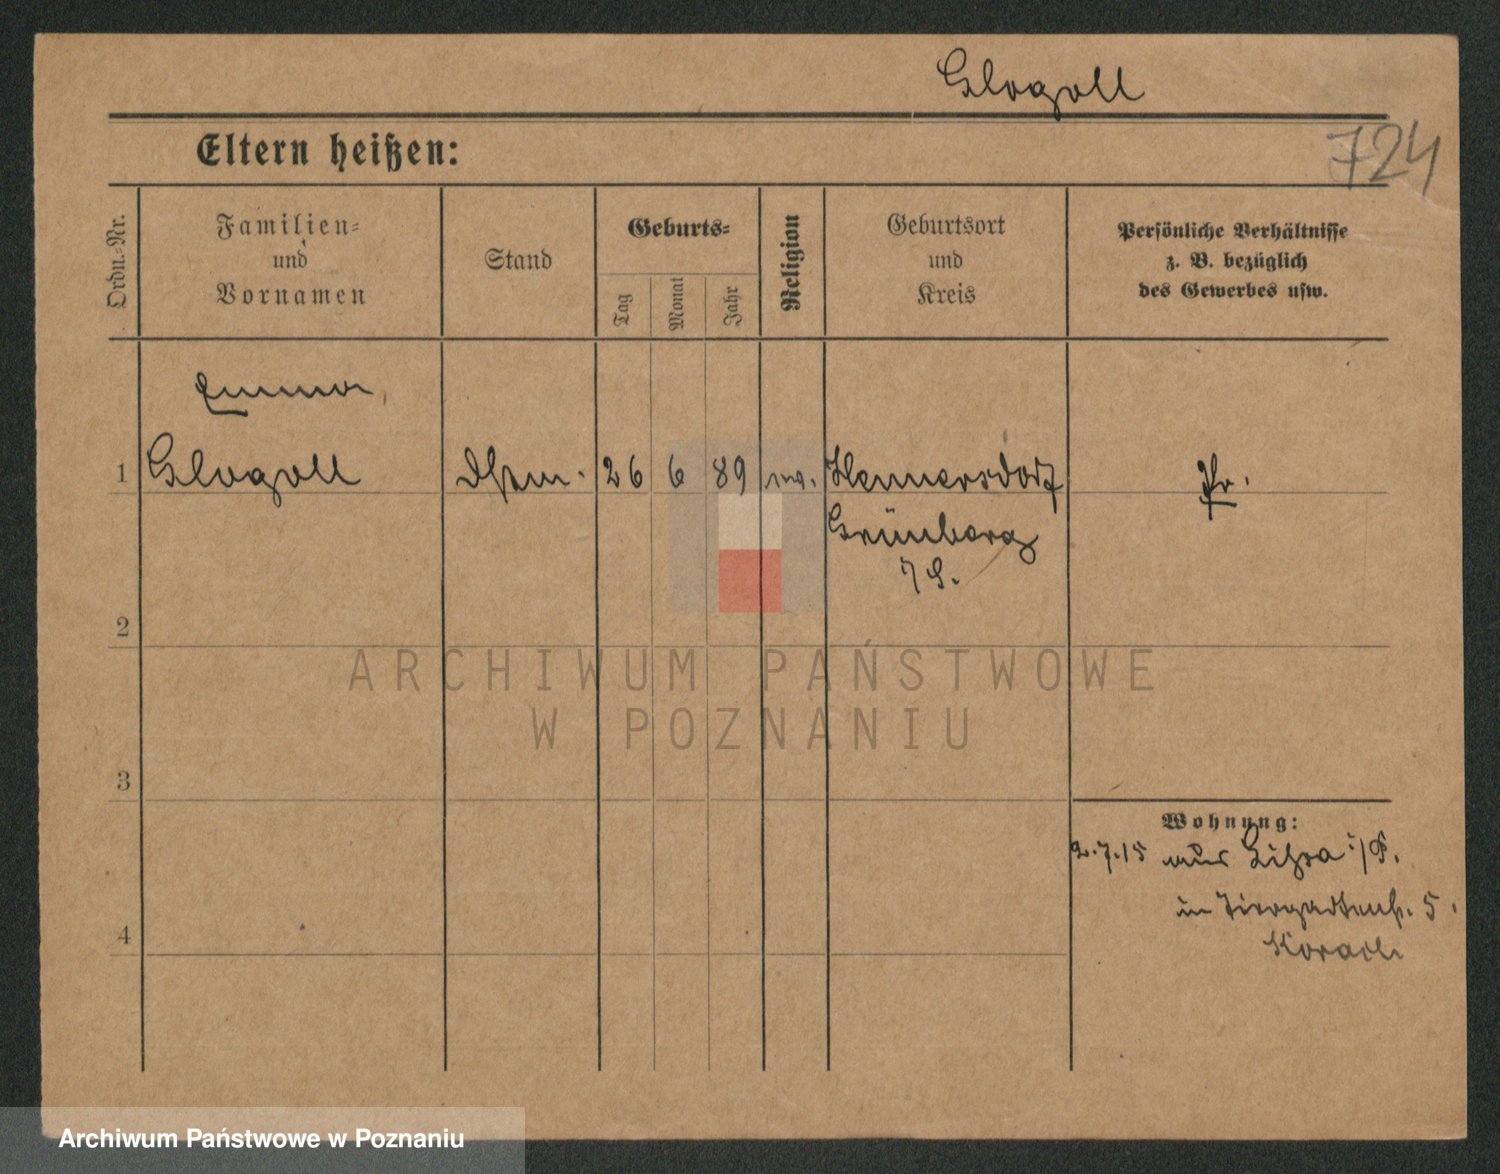 Glogoll
724
Eltern heißen:
Ordn.-Nr.
Familien-
und
Vornamen
Stand
Geburts-
Tag
Monat
Jahr
Religion
Geburtsort
und
Kreis
Persönliche Verhältnisse
z. B. bezüglich
des Gewerbes usw.
Emma
1 Glogoll 26 6 89 Hennersdorf Pr.
Grünberg
2
ARCHIWUM PAŃSTWOWE
W POZNANIU
3
Wohnung:
2.7.15 aus Lissa i/P.
in Tiergartenstr. 5.
4
Archiwum Państwowe w Poznaniu